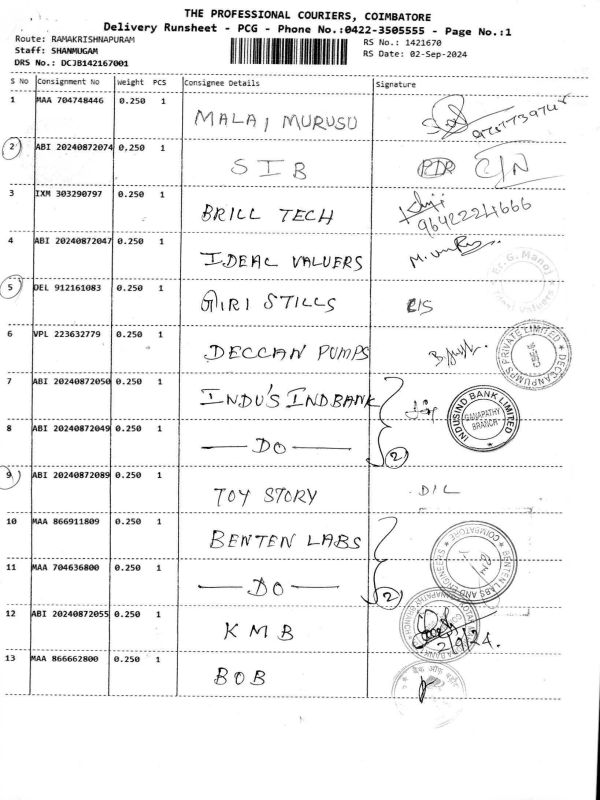 THE PROFESSIONAL COURIERS, COIMBATORE
Delivery Runsheet - PCG - Phone No.:0422-3505555 - Page No.:1
Route: RAMAKRISHNAPURAM
Staff: SHANMUGAM
DRS No.: DCJB142167001
RS No.: 1421670
RS Date: 02-Sep-2024
S No Consignment No Weight PCS Consignee Details Signature
1 MAA 704748446 0.250 1 MALAI MURUSU
2 ABI 20240872074 0,250 1 SIB PDR C/N
3 IXM 303290797 0.250 1 BRILL TECH
96422241666
4 ABI 20240872047 0.250 1 IDEAL VALUERS
Er.G. Manoj
5 DEL 912161083 0.250 1 GIRI STILLS C/S
6 VPL 223632779 0.250 1 DECCAN PUMPS
DECCANPUMPS PRIVATE LIMITED
7 ABI 20240872050 0.250 1 INDU'S INDBANK
INDUSIND BANK LIMITED
GANAPATHY
BRANCH
8 ABI 20240872049 0.250 1 — DO — 2
9 ABI 20240872089 0.250 1 TOY STORY D/L
10 MAA 866911809 0.250 1 BENTEN LABS
BENTEN LABS AND ENGINEERS
COIMBATORE
11 MAA 704636800 0.250 1 — DO — 2
12 ABI 20240872055 0.250 1 KMB
2/9/24.
13 MAA 866662800 0.250 1 BOB
बैंक ऑफ़ बड़ौदा